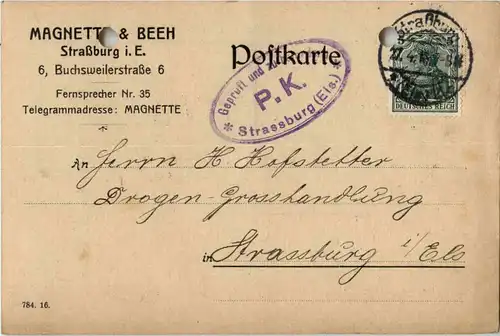 MAGNETTE & BEEH
Straßburg i. E.
6, Buchsweilerstraße 6
Fernsprecher Nr. 35
Telegrammadresse: MAGNETTE
Postkarte
Geprüft und
P.K.
* Strassburg (Els.) *
Straßburg
DEUTSCHES REICH
An Herrn H Hofstetter
Drogen-Grosshandlung
in Strassburg i/Els
784. 16.